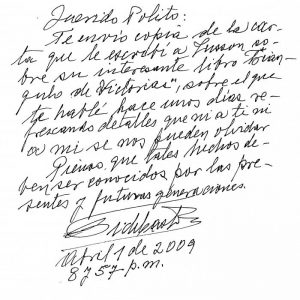 Querido Polito:
Te envío copia de la car-
ta que le escribí a Susson so-
bre su interesante libro Trian-
gulo de Victorias", sobre el que
te hablé hace unos días re-
frescando detalles que ni a ti ni
a mi se nos pueden olvidar
Pienso que tales hechos de-
ben ser conocidos por las pre-
sentes y futuras generaciones.
Abril 1 de 2009
8 y 57 p.m.